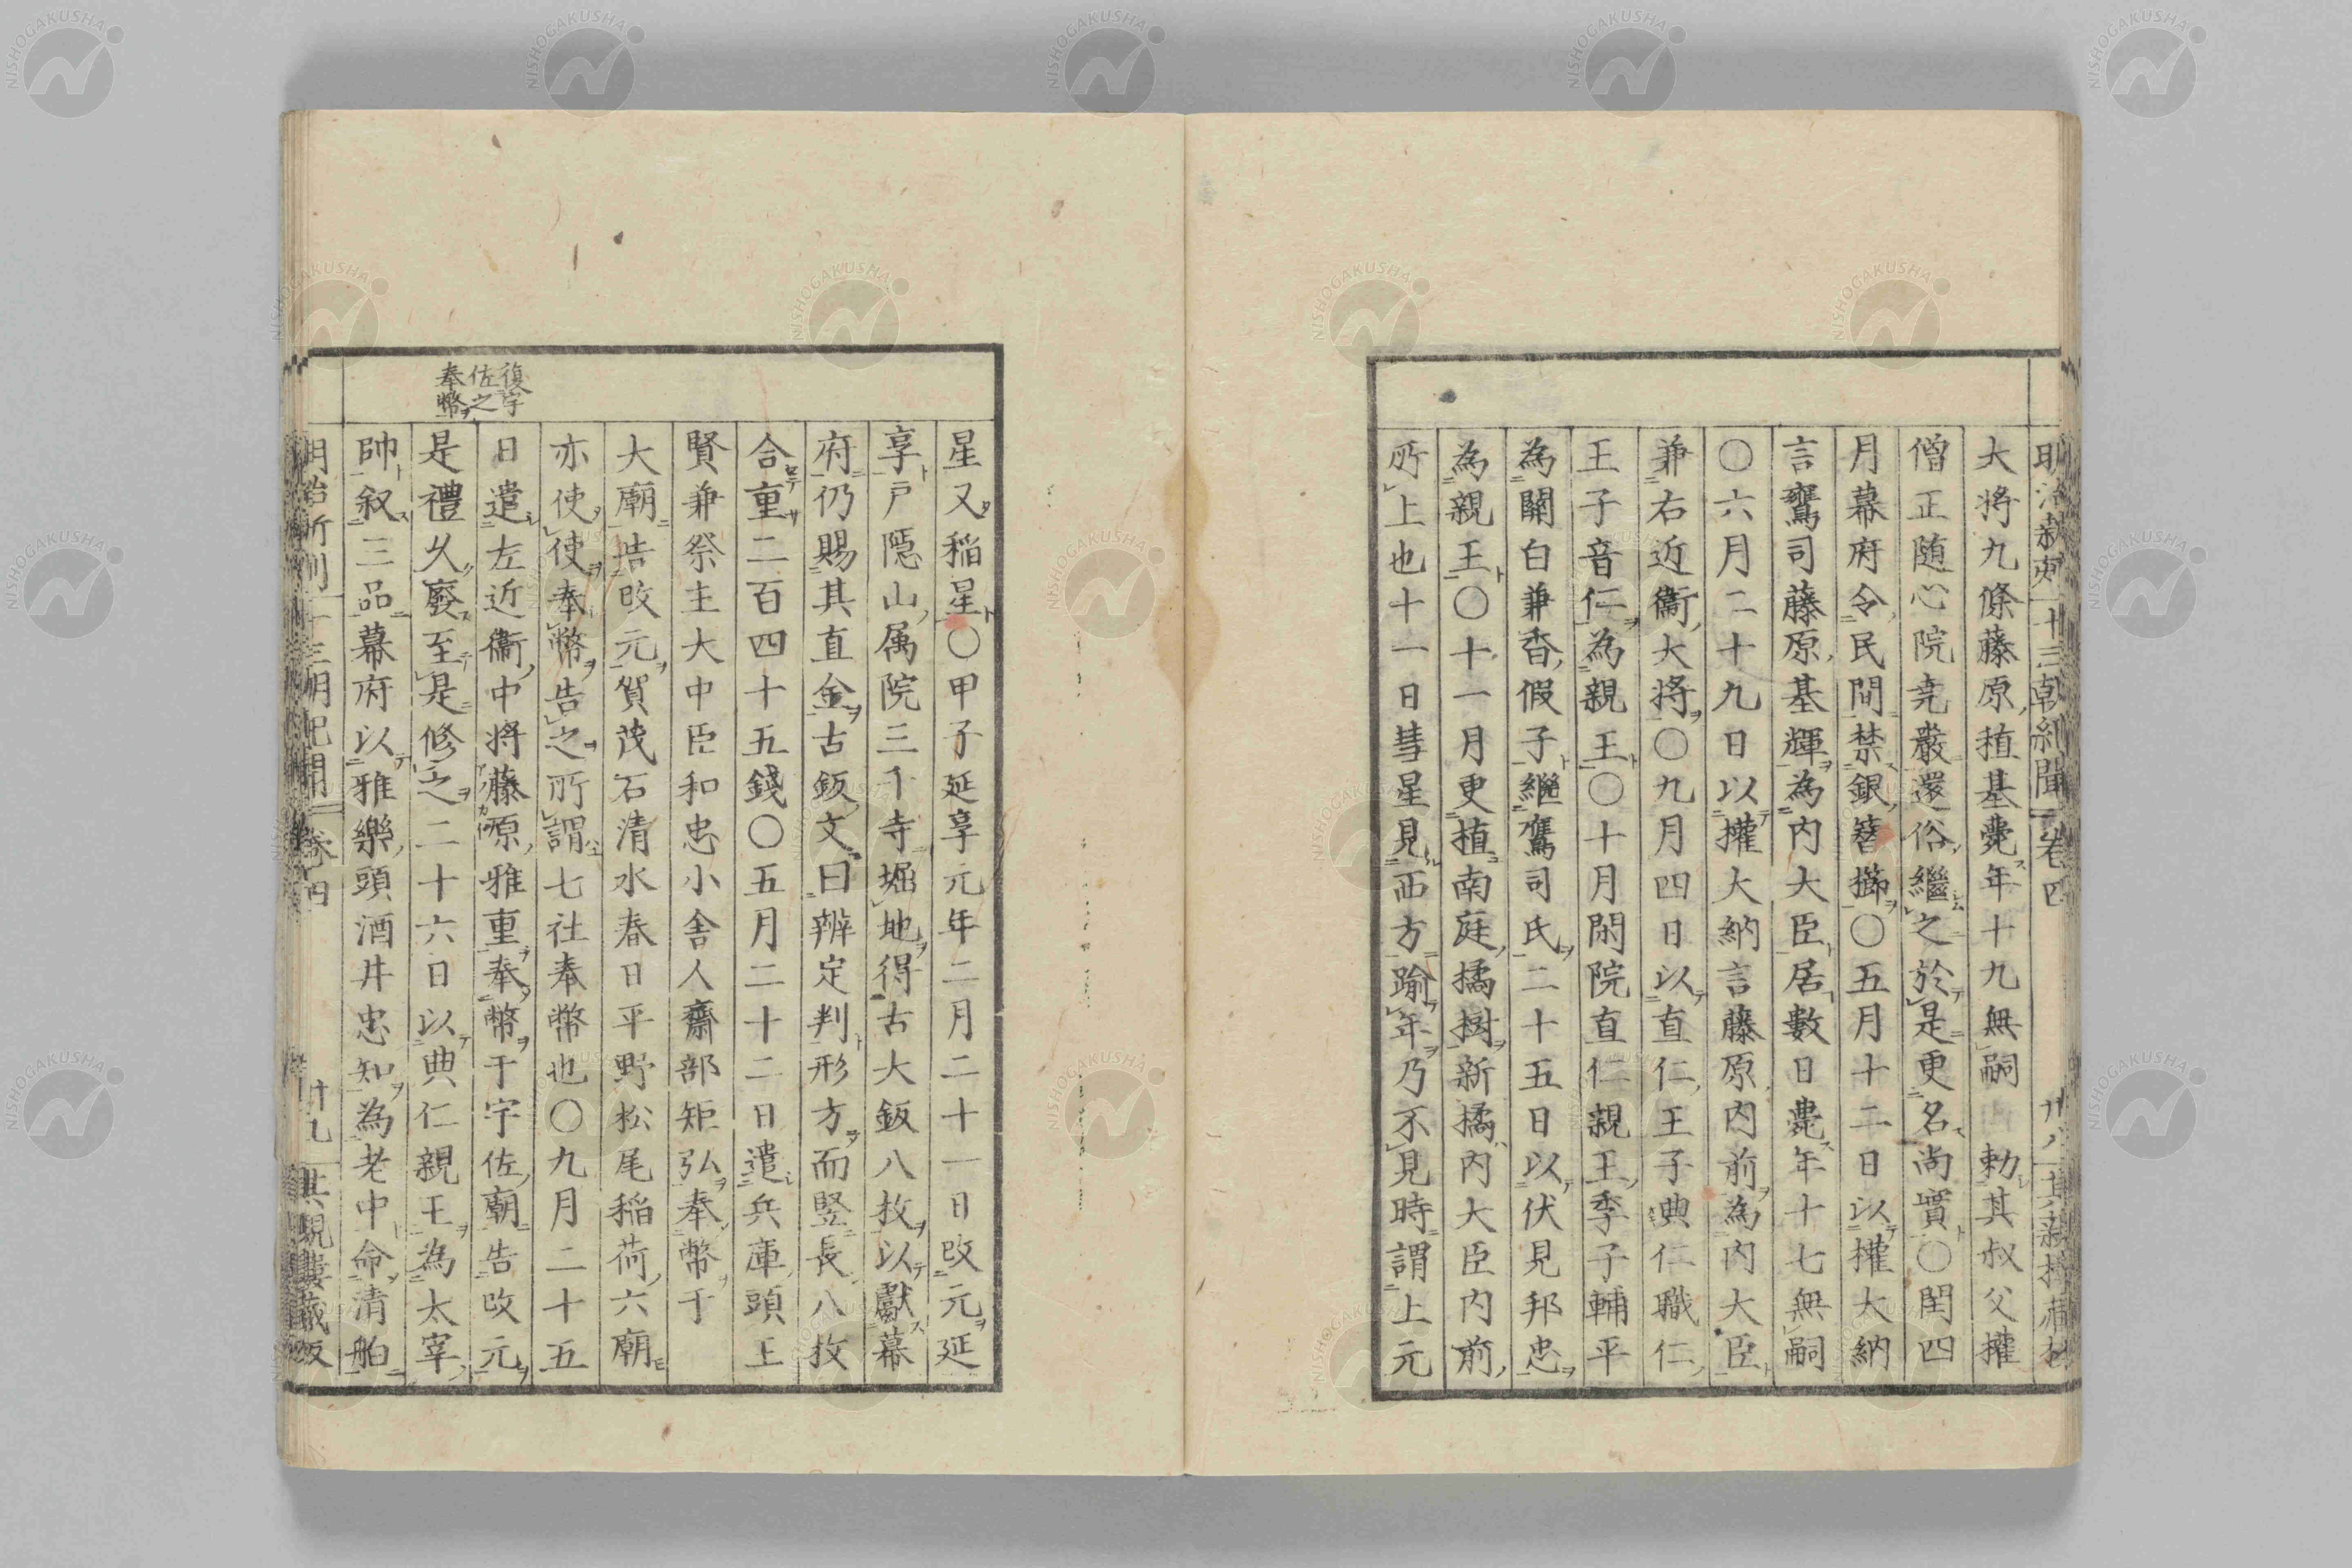 大將九條藤原植基薨年十九無嗣勅其叔父權
僧正随心院尭嚴還俗繼之於是更名尚實○閏四
月幕府令民間禁銀簪櫛○五月十二日以權大納
言鷹司藤原基輝為内大臣居數日薨年十七無嗣
○六月二十九日以權大納言藤原内前為内大臣
兼右近衞大將○九月四日以直仁王子典仁職仁
王子音仁為親王○十月閑院直仁親王季子輔平
為關白兼香假子繼鷹司氏二十五日以伏見邦忠
為親王○十一月更植南庭橘樹新橘内大臣内前
所上也十一日彗星見西方踰年乃不見時謂上元
星又稲星○甲子延享元年二月二十一日改元延
享戸隠山属院三千寺堀地得古大鈑八枚以獻幕
府仍賜其直金古鈑文曰辨定判形方而竪長八枚
合重二百四十五錢○五月二十二日遣兵庫頭上
賢兼祭主大中臣和忠小舎人齋部矩弘奉幣于
大廟告改元賀茂石清水春日平野松尾稲荷六廟
亦使使奉幣告之所謂七社奉幣也○九月二十五
日遣左近衞中將藤原雅重奉幣于宇佐廟告改元
是禮久廢至是修之二十六日以典仁親王為太宰
帥叙三品幕府以雅樂頭酒井忠知為老中命清舶
復宇
佐之
奉幣
明治新刻
十三朝紀聞
卷四
廿八
明治新刻
十三朝紀聞
卷四
廿九
NISHOGAKUSHA